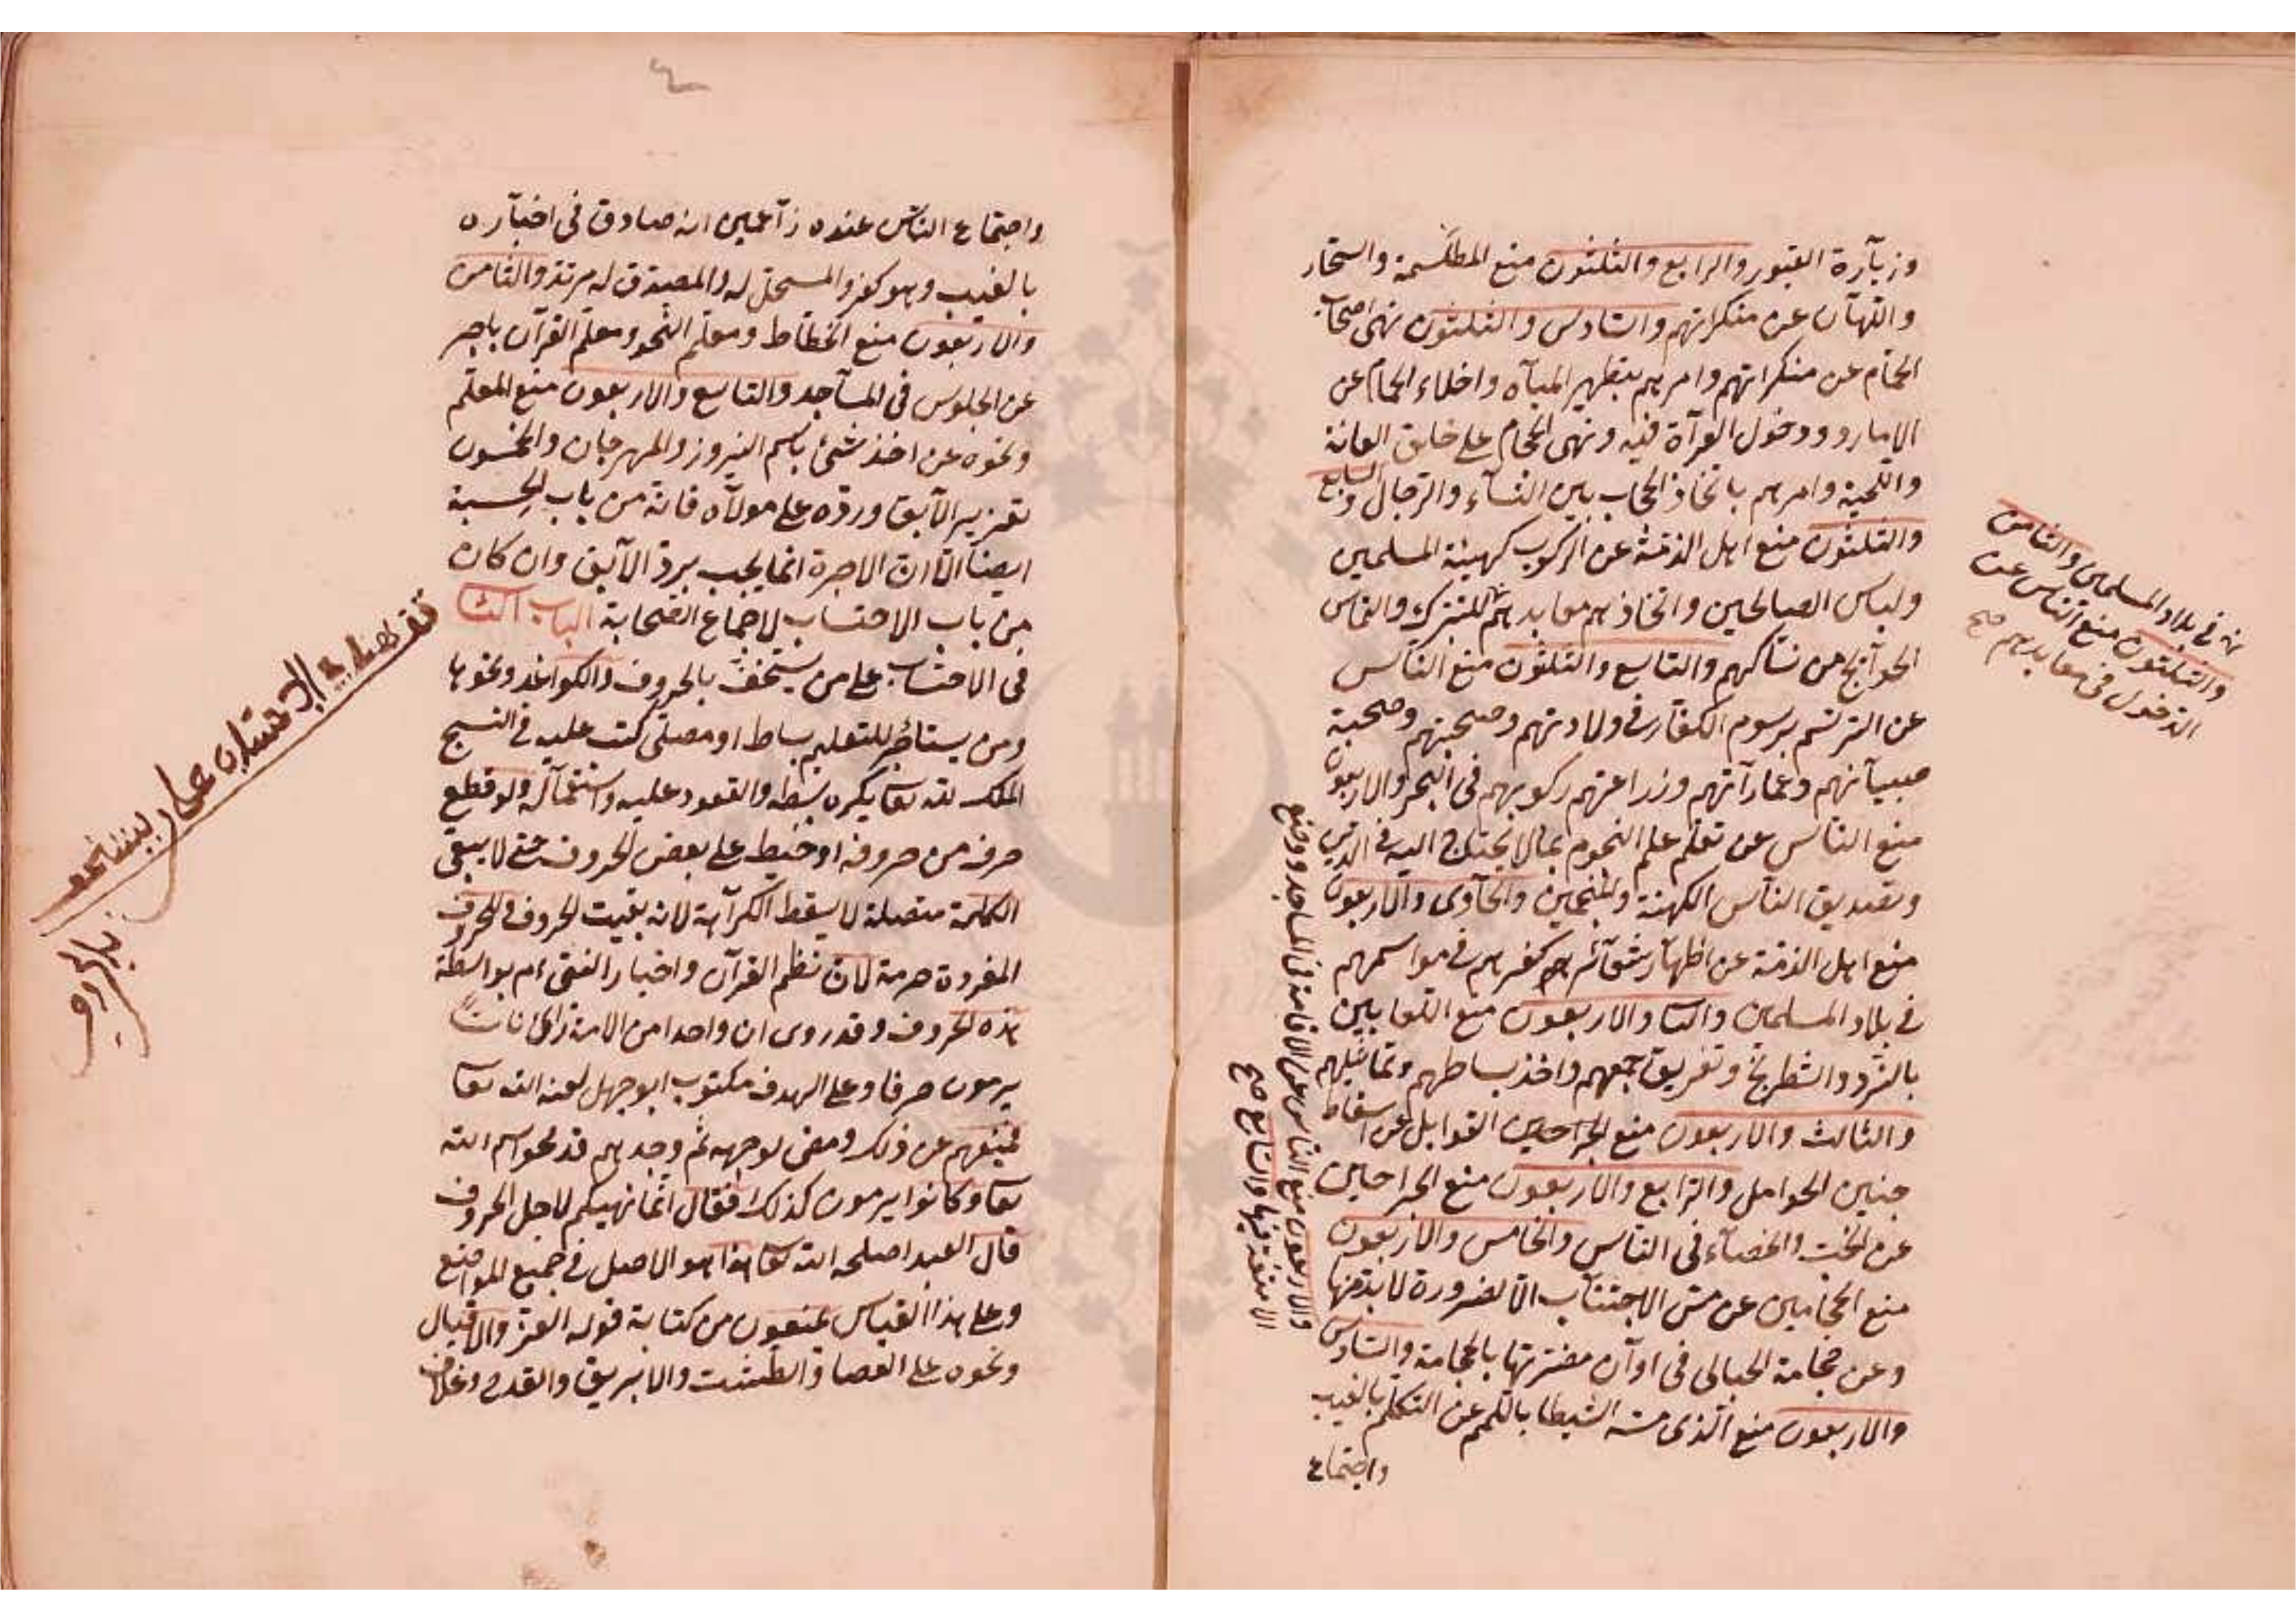 وزيآرة القبور والرابع والثلثون منع المطلسمة والسحّار
والكهّان عن منكراتهم والسّادس والثلثون نهى اصحاب
الحمّام عن منكراتهم وامرهم بتطهير الميآه واخلاء الحمام عن
الامارد ودخول المرآة فيه ونهى الحجام على حلق العانة
واللحية وامرهم باتخاذ الحجاب بين النسآء والرجال والسابع
والثلثون منع اهل الذمّة عن الركوب كهيئة المسلمين
ولباس الصالحين واتخاذهم معابدهم للتبرك والتماس
الحوآئج من نساكهم والتاسع والثلثون منع النّاس
عن الترسّم برسوم الكفار فى ولادتهم وصحبتهم وصحبة
صبيآنهم وعمارآتهم وزراعتهم ركوبهم فى البحر والاربعون
منع النّاس عن تعلّم علم النجوم بمالا يحتاج اليه فى الدّين
وتصديق النّاس الكهنة والمنجمين والحآدى والاربعون
منع اهل الذمّة عن اظهآر شعآئر كفرهم فى مواسمهم
فى بلاد المسلمين والثا والاربعون منع اللعابين
بالنّرد والشطرنج وتفريق جمعهم واخذ بساطهم وتماثيلهم
والثالث والاربعون منع الجرّاحين القوابل عن اسقاط
جنين الحوامل والرّابع والاربعون منع الجراحين
عن الجبّ والخصآء فى النّاس والخامس والاربعون
منع الحجّامين عن مسّ الاجنبيات الا لضرورة لابدّ منها
وعن حجامة الحبالى فى اوآن مضرّتها بالحجامة والسّادس
والاربعون منع الّذى مسّه الشيطا باللمم عن التكلم بالغيب
واجتماع
فى بلاد المسلمين والثامن
والثلثون منع النّاس عن
الدخول فى معابدهم صح
والاربعون منع النّاس عن الاقامة فى المساجد ووضع
الامتعة فيها والسّابع صح
واجتماع النّاس عنده زآعمين انه صادق فى اخبآره
بالغيب وهو كفر والمستحلّ له والمصدق له مرتدّ والثامن
والاربعون منع الخطّاط ومعلّم النّحو ومعلّم القرآن باجر
عن الجلوس فى المسآجد والتاسع والاربعون منع المعلّم
ونحوه عن اخذ شئ باسم النيروز والمهرجان والخمسون
تعزير الآبق ورده على مولآه فانه من باب الحسبة
ايضا الّا انّ الاجرة انما يجب بردّ الآبق وان كان
من باب الاحتساب لاجماع الصّحابة الباب الثا
فى الاحتساب على من يستخفّ بالحروف والكواغد ونحوها
ومن يستأجر للتعليم بساط او مصلّى كتب عليه فى النسج
الملك لله تعا يكره بسطه والقعود عليه واستعمآله ولو قطع
حرف من حروفه او خيط على بعض الحروف حتى لا يبقى
الكلمة متصلة لا يسقط الكرآهة لانه بقيت الحروف وللحروف
المفردة حرمة لانّ نظم القرآن واخبار النبى ءم بواسطة
هذه الحروف وقد روى ان واحدا من الائمة رآى ناسًا
يرمون حرفا وعلى الهدف مكتوب ابوجهل لعنه الله تعا
فمنعهم عن ذلك ومضى لوجهه ثمّ وجدهم قد محو اسم الله
تعا وكانوا يرمون كذلك فقال انّما نهيتكم لاجل الحروف
قال العبد اصلحه الله تعا هذا هو الاصل فى جميع المواضع
وعلى هذا القياس يمنعون من كتابة قوله العزّ والاقبال
ونحوه على العصا والطشت والابريق والقدح وغلاف